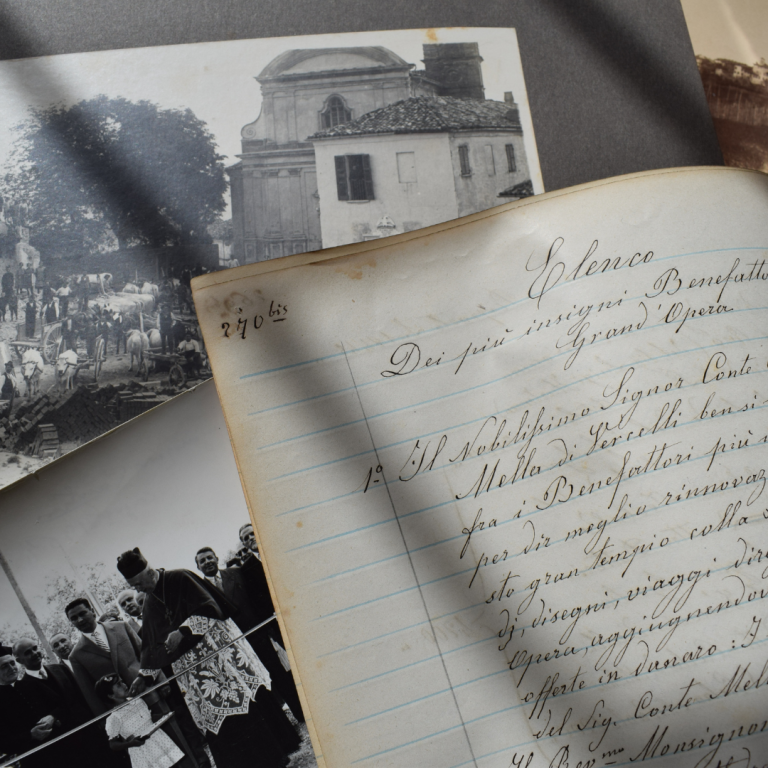 270 bis
Elenco
Dei più insigni Benefatto
Grand'Opera
1º Il Nobilissimo Signor Conte
Mella di Vercelli ben si
fra i Benefattori più
per dir meglio rinnovaz
sto gran tempio colla
dj, disegni, viaggi dire
Opera, aggiugnendov
offerte in danaro: I
del Sig. Conte Mell
Il Rev.mo Monsignor